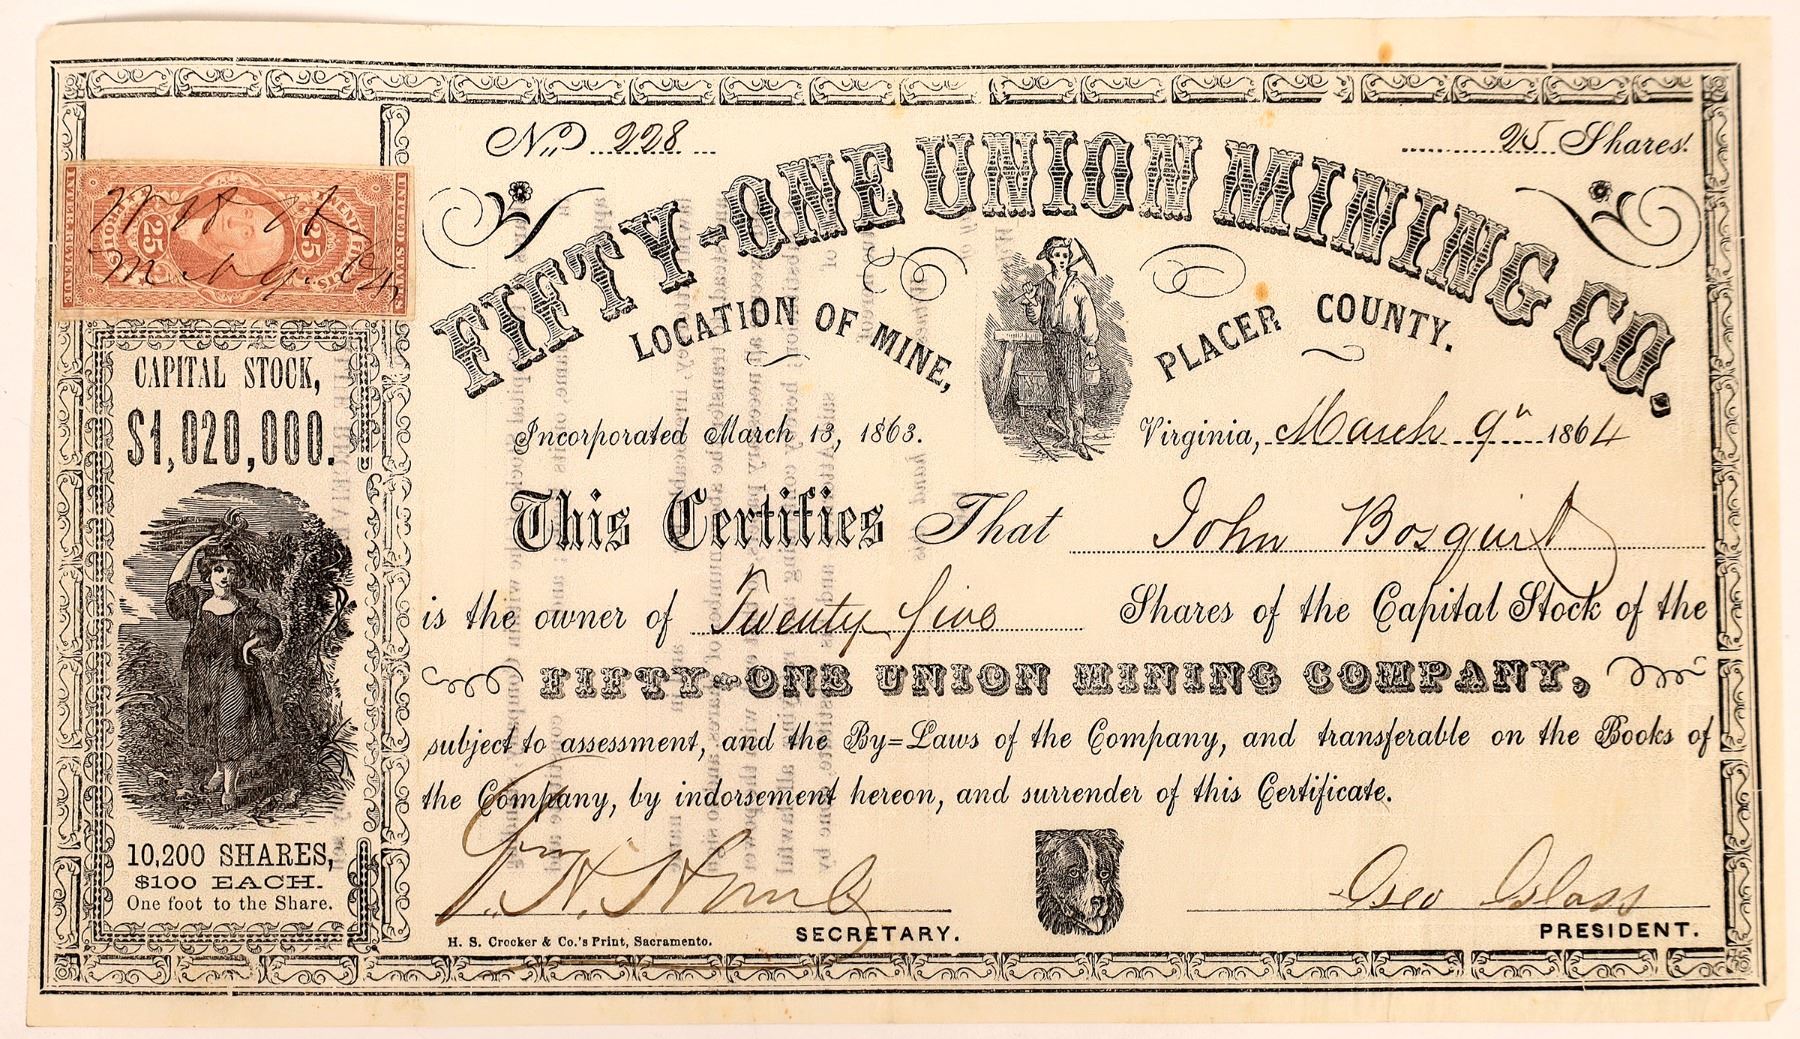 No. 228
25 Shares.
FIFTY-ONE UNION MINING CO.
LOCATION OF MINE, PLACER COUNTY.
Incorporated March 13, 1863.
Virginia, March 9th 1864
This Certifies That John Bosquit
is the owner of Twenty five Shares of the Capital Stock of the
FIFTY-ONE UNION MINING COMPANY,
subject to assessment, and the By=Laws of the Company, and transferable on the Books of
the Company, by indorsement hereon, and surrender of this Certificate.
Geo Glass
SECRETARY.
PRESIDENT.
H. S. Crocker & Co.'s Print, Sacramento.
UNITED STATES
TWENTY FIVE CENTS
25
25
INTER REVENUE
CAPITAL STOCK,
$1,020,000.
10,200 SHARES,
$100 EACH.
One foot to the Share.